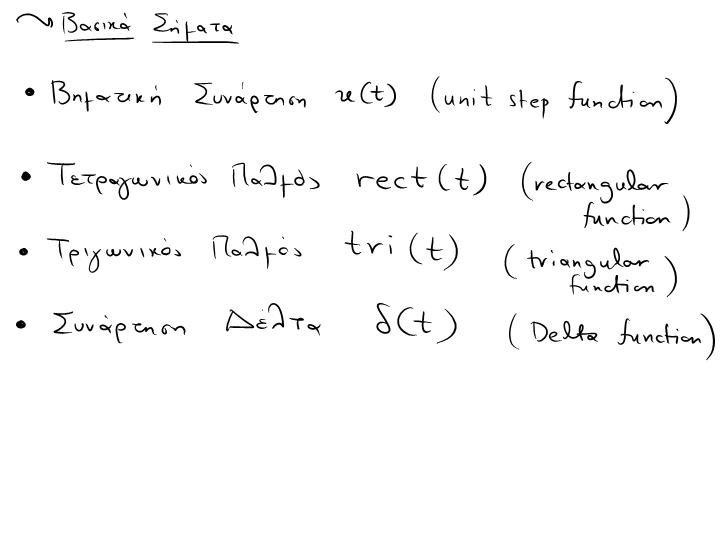 Βασικά Σήματα
• Βηματική Συνάρτηση u(t) (unit step function)
• Τετραγωνικός Παλμός rect(t) (rectangular function)
• Τριγωνικός Παλμός tri(t) (triangular function)
• Συνάρτηση Δέλτα δ(t) (Delta function)